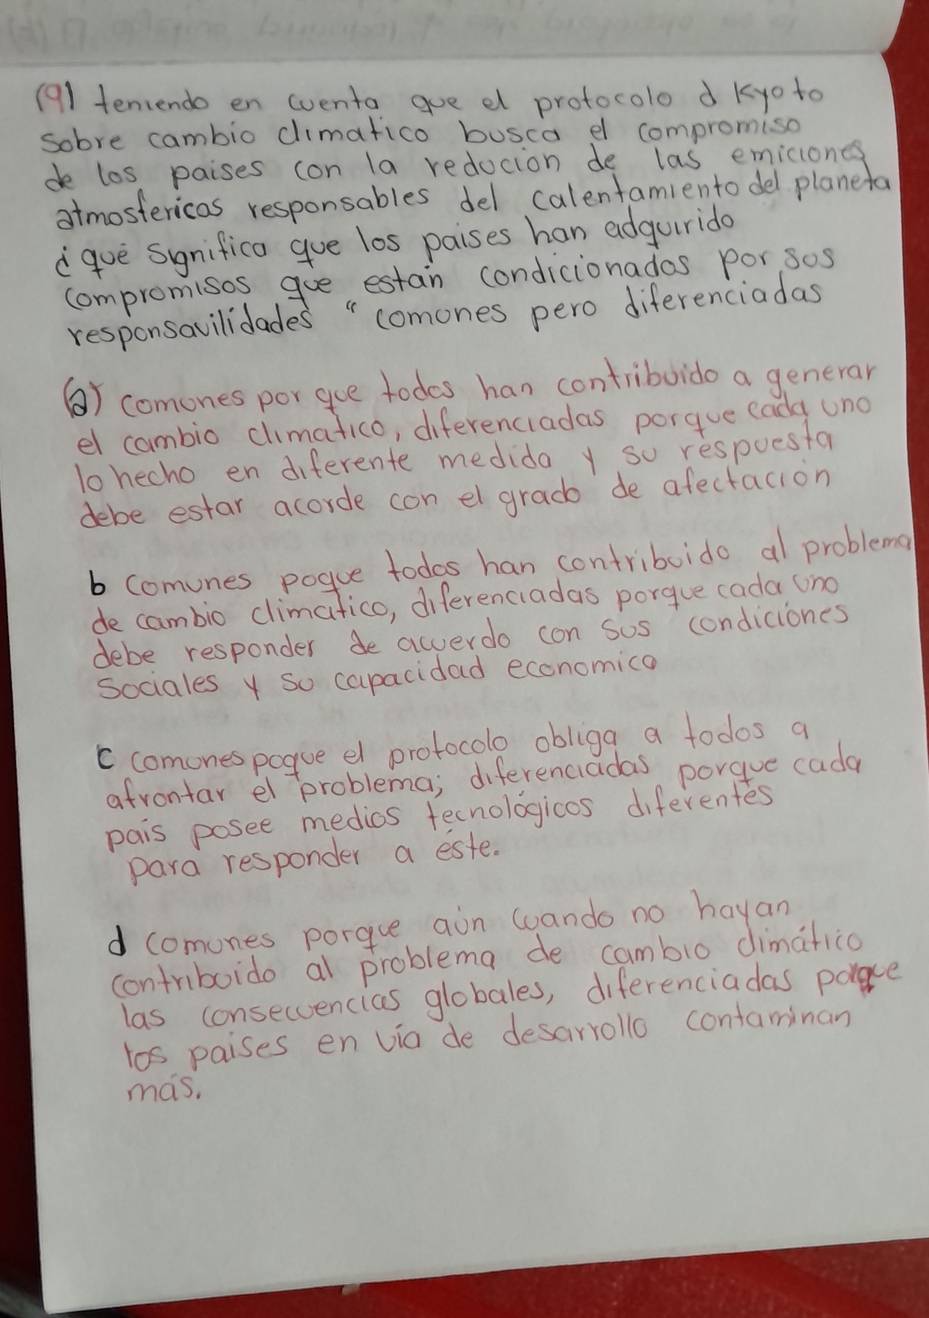 (9) teniendo en cuenta que el protocolo d Kyoto
sobre cambio climatico busca el compromiso
de los paises con la reducion de las emiciones
atmosfericas responsables del calentamiento del planeta
¿què significa que los paises han adquirido
compromisos que estan condicionados por sus
responsavilidades " comunes pero diferenciadas
(a) comunes por que todos han contribuido a generar
el cambio climatico, diferenciadas porque cada uno
lo hecho en diferente medida y su respuesta
debe estar acorde con el grado de afectaciòn
b comunes poque todos han contribuido al problema
de cambio climatico, diferenciadas porque cada uno
debe responder de acuerdo con sus condiciones
sociales y su capacidad economica
c comunes poque el protocolo obliga a todos a
afrontar el problema; diferenciadas porque cada
paìs posee medios tecnològicos diferentes
para responder a èste.
d comunes porque aùn cuando no hayan
contribuido al problema de cambio climàtico
las consecuencias globales, diferenciadas porque
los paises en vìa de desarrollo contaminan
màs.